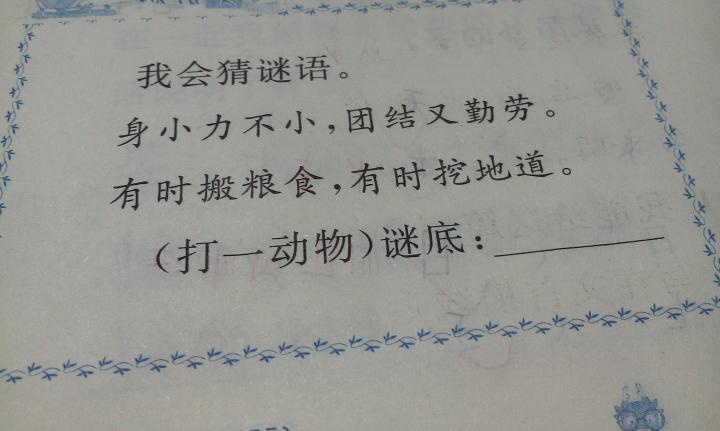 我会猜谜语。
身小力不小，团结又勤劳。
有时搬粮食，有时挖地道。
（打一动物）谜底：